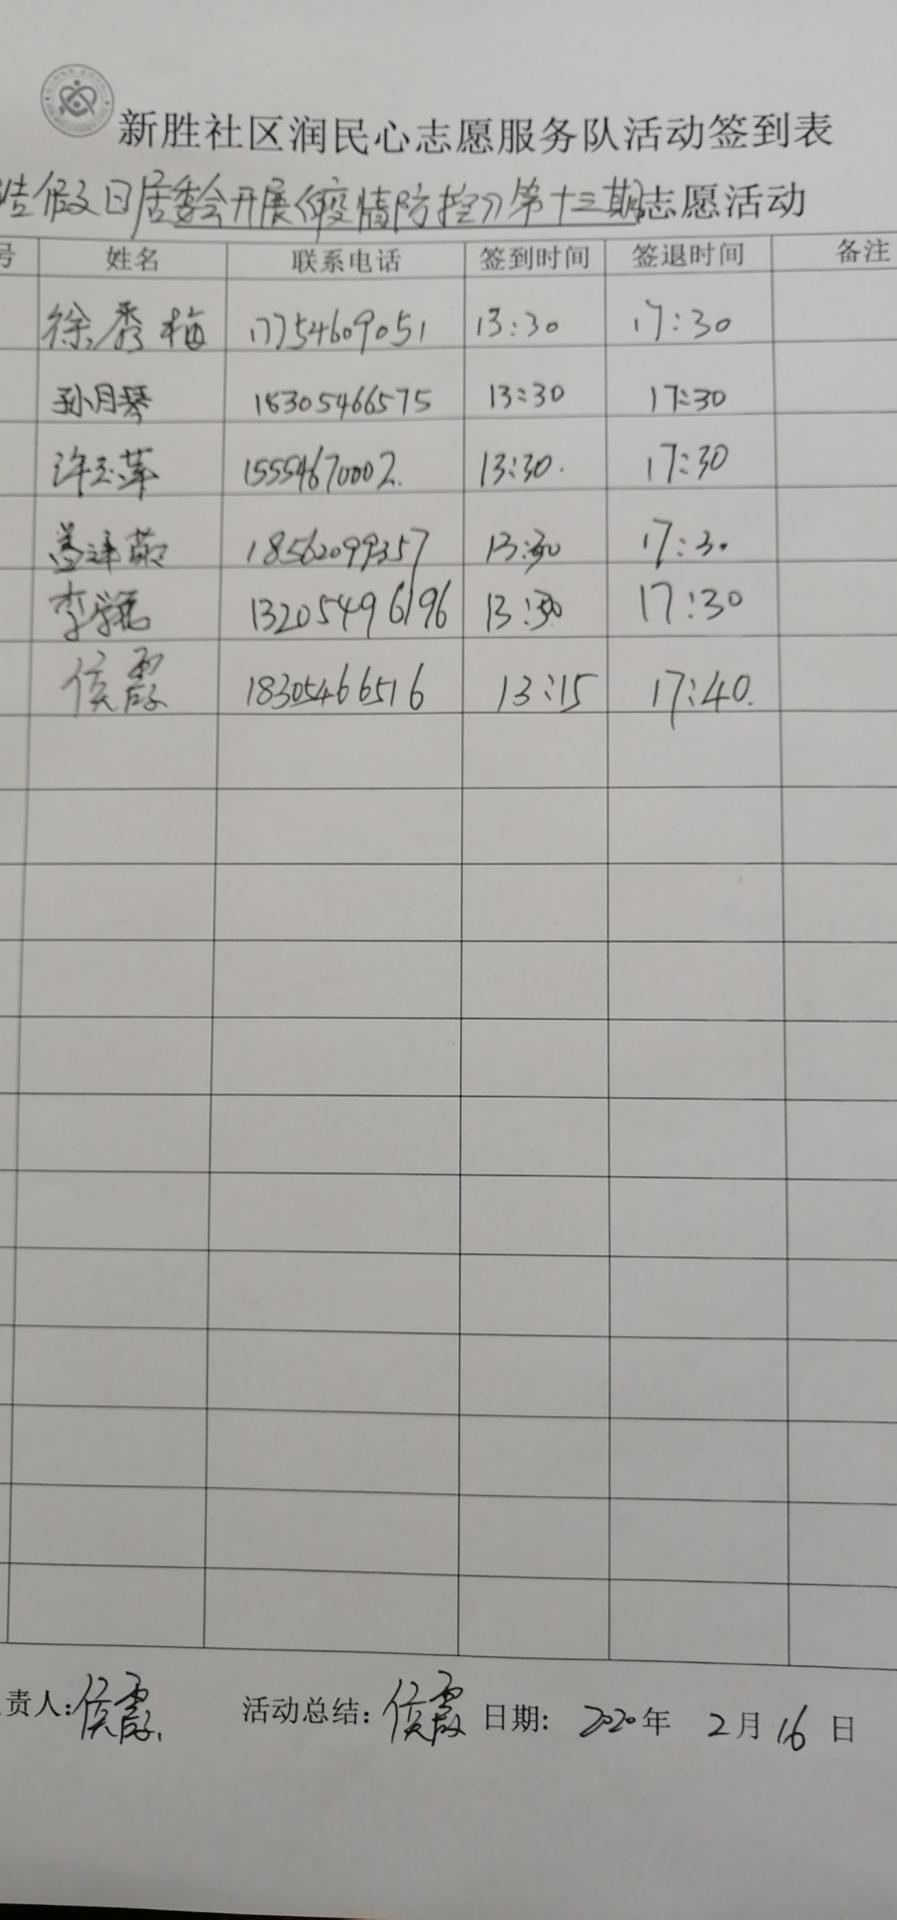 新胜社区润民心志愿服务队活动签到表
浩假日居委会开展《疫情防控》第十三期志愿活动
号 姓名 联系电话 签到时间 签退时间 备注
徐秀梅 17754609051 13:30 17:30
孙月琴 18305466575 13:30 17:30
许玉萍 15554670002. 13:30. 17:30
18562099357 13:30 17:30
李 13205496196 13:30 17:30
侯霞 18305466516 13:15 17:40.
责人:侯霞. 活动总结: 侯霞 日期: 2020年 2月16日